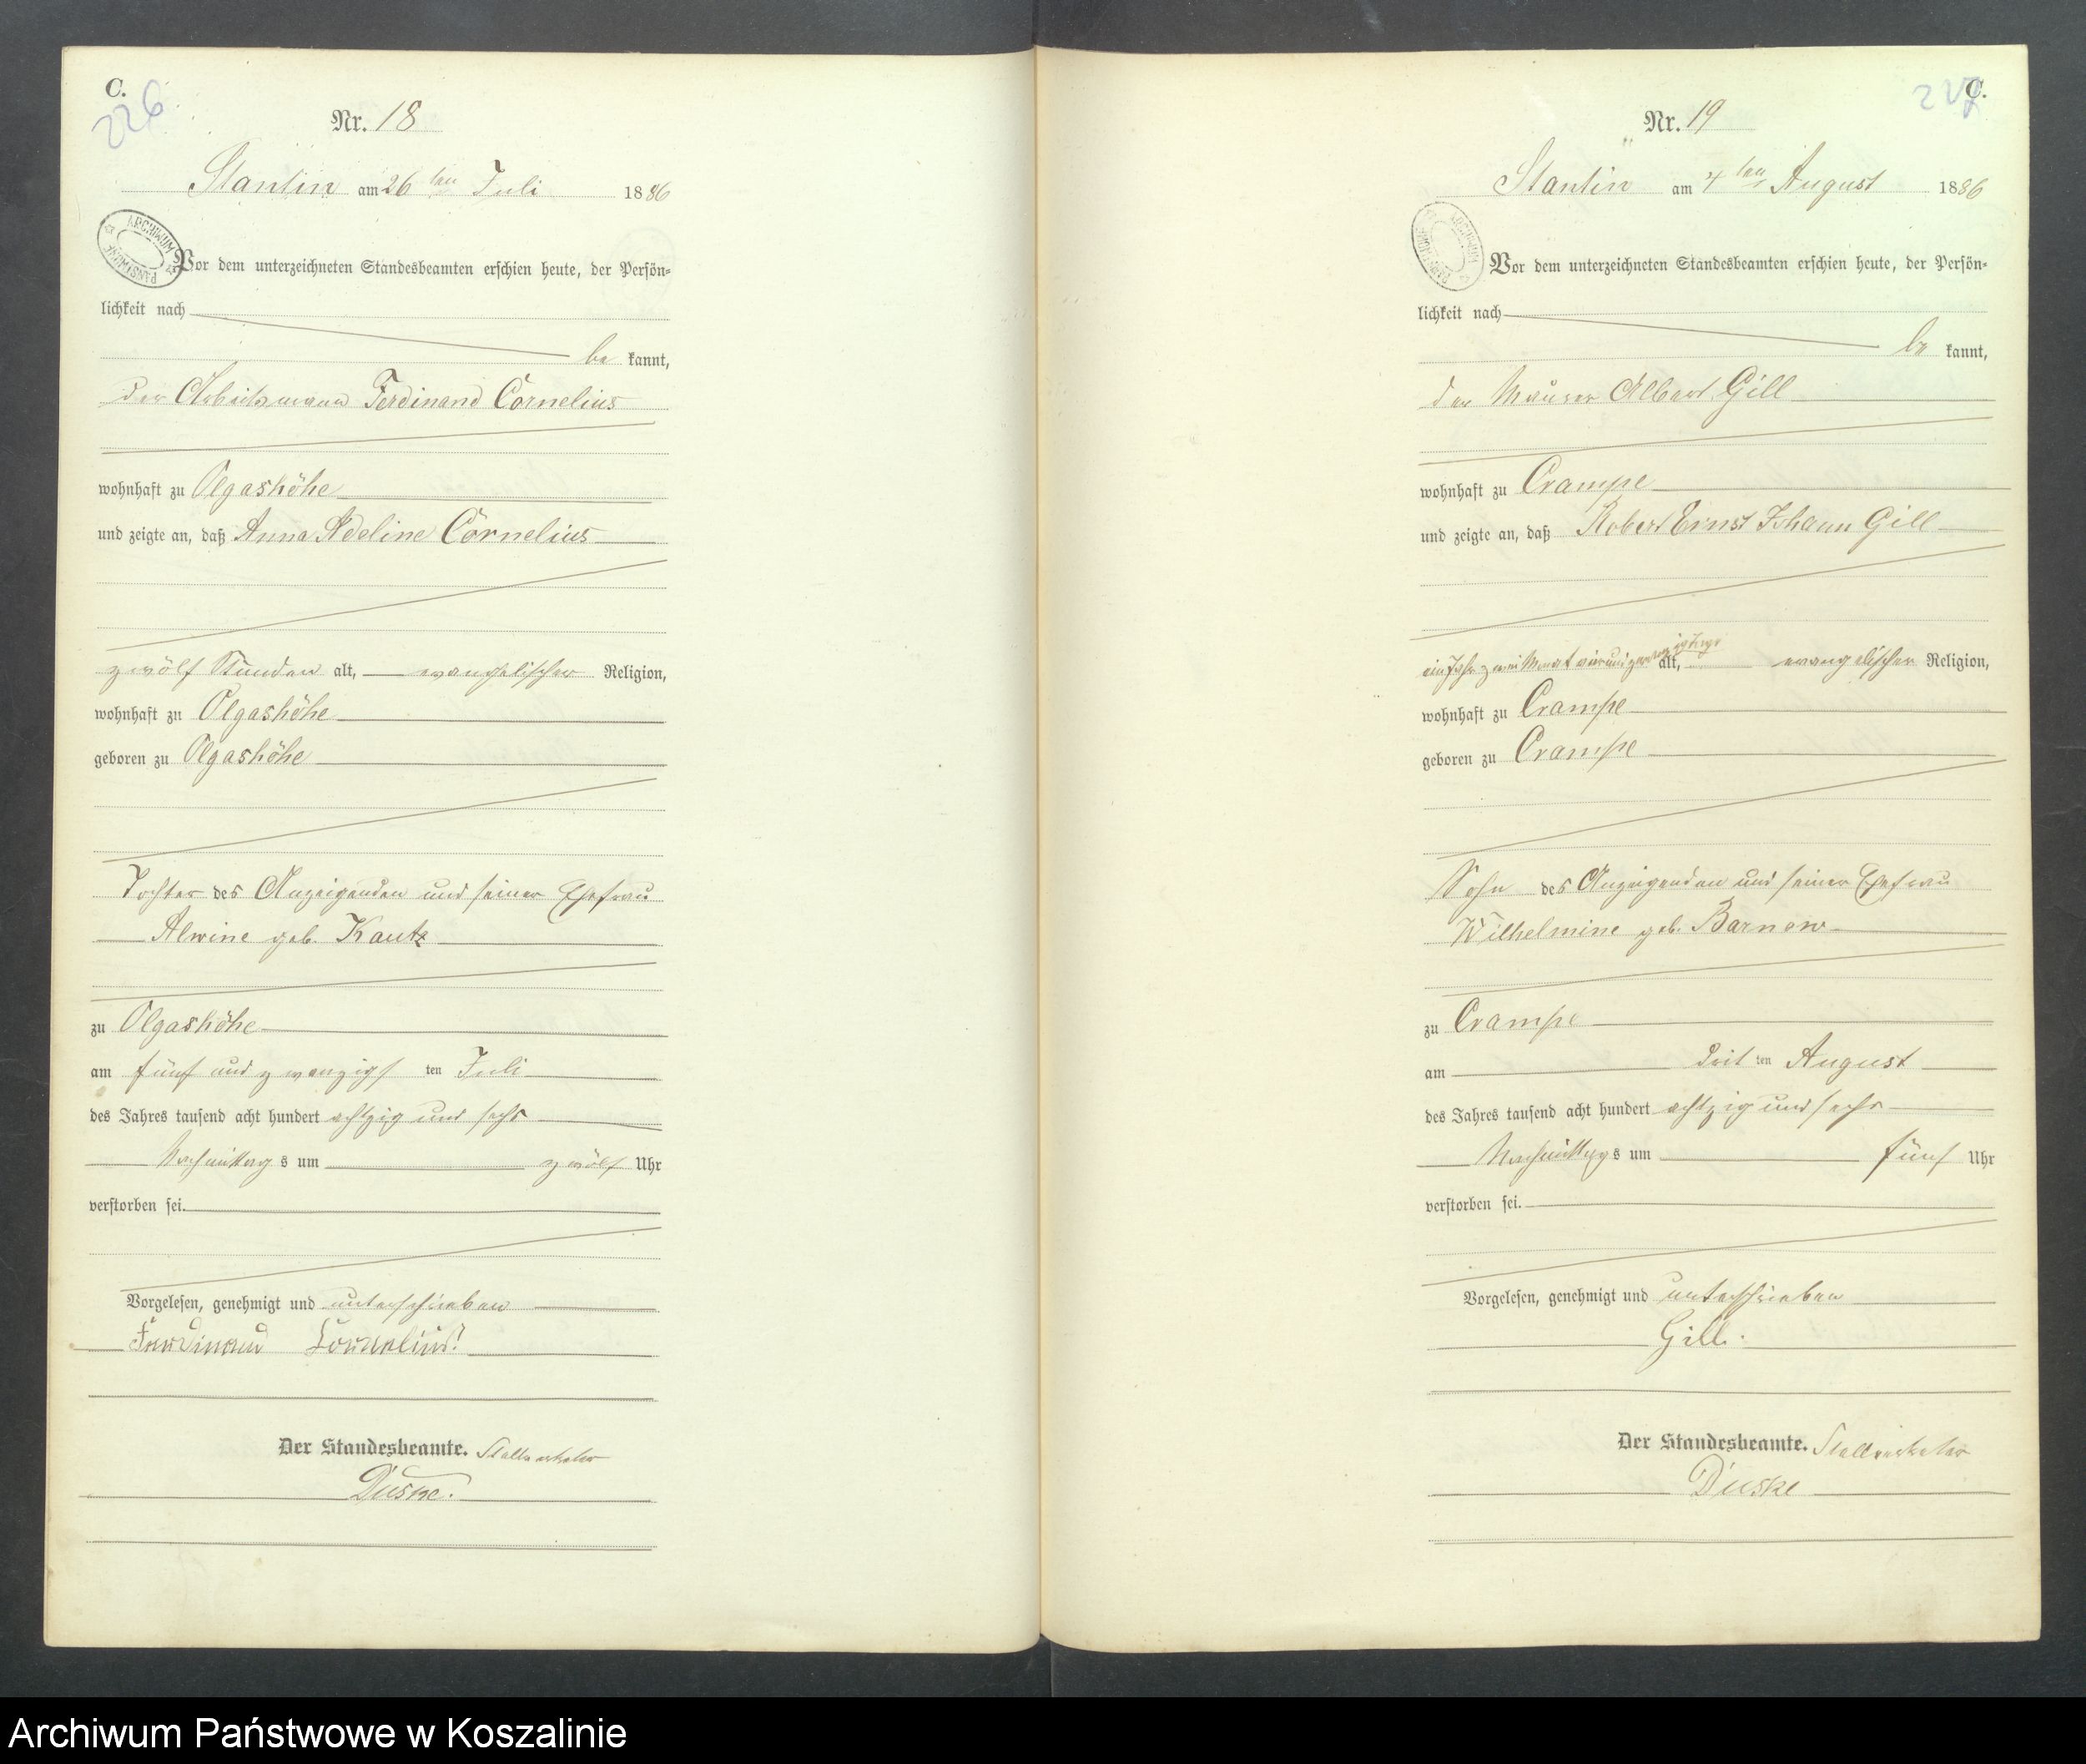 C.
226
Nr. 18
Stantin am 26 ten Juli 1886
ARCHIWUM PAŃSTWOWE
Vor dem unterzeichneten Standesbeamten erschien heute, der Persön-
lichkeit nach
be kannt,
der Arbeitsmann Ferdinand Cornelius
wohnhaft zu Olgashöhe
und zeigte an, daß Anna Adeline Cornelius
zwölf Stunden alt, evangelischer Religion,
wohnhaft zu Olgashöhe
geboren zu Olgashöhe
Tochter des Anzeigenden und seiner Ehefrau
Alwine geb. Kautz
zu Olgashöhe
am fünf und zwanzigs ten Juli
des Jahres tausend acht hundert achtzig und sechs
Nachmittag s um zwölf Uhr
verstorben sei.
Vorgelesen, genehmigt und unterschrieben
Ferdinand Cornelius
Der Standesbeamte. Stellvertreter
Düske.
C.
227
Nr. 19
Stantin am 4 ten August 1886
Vor dem unterzeichneten Standesbeamten erschien heute, der Persön-
lichkeit nach
be kannt,
der Maurer Albert Gill
wohnhaft zu Crampe
und zeigte an, daß Robert Ernst Johann Gill
ein Jahr zwei Monat vierundzwanzig Tage alt, evangelischer Religion,
wohnhaft zu Crampe
geboren zu Crampe
Sohn des Anzeigenden und seiner Ehefrau
Wilhelmine geb. Barnow
zu Crampe
am drit ten August
des Jahres tausend acht hundert achtzig und sechs
Nachmittag s um fünf Uhr
verstorben sei.
Vorgelesen, genehmigt und unterschrieben
Gill.
Der Standesbeamte. Stellvertreter
Düske
Archiwum Państwowe w Koszalinie